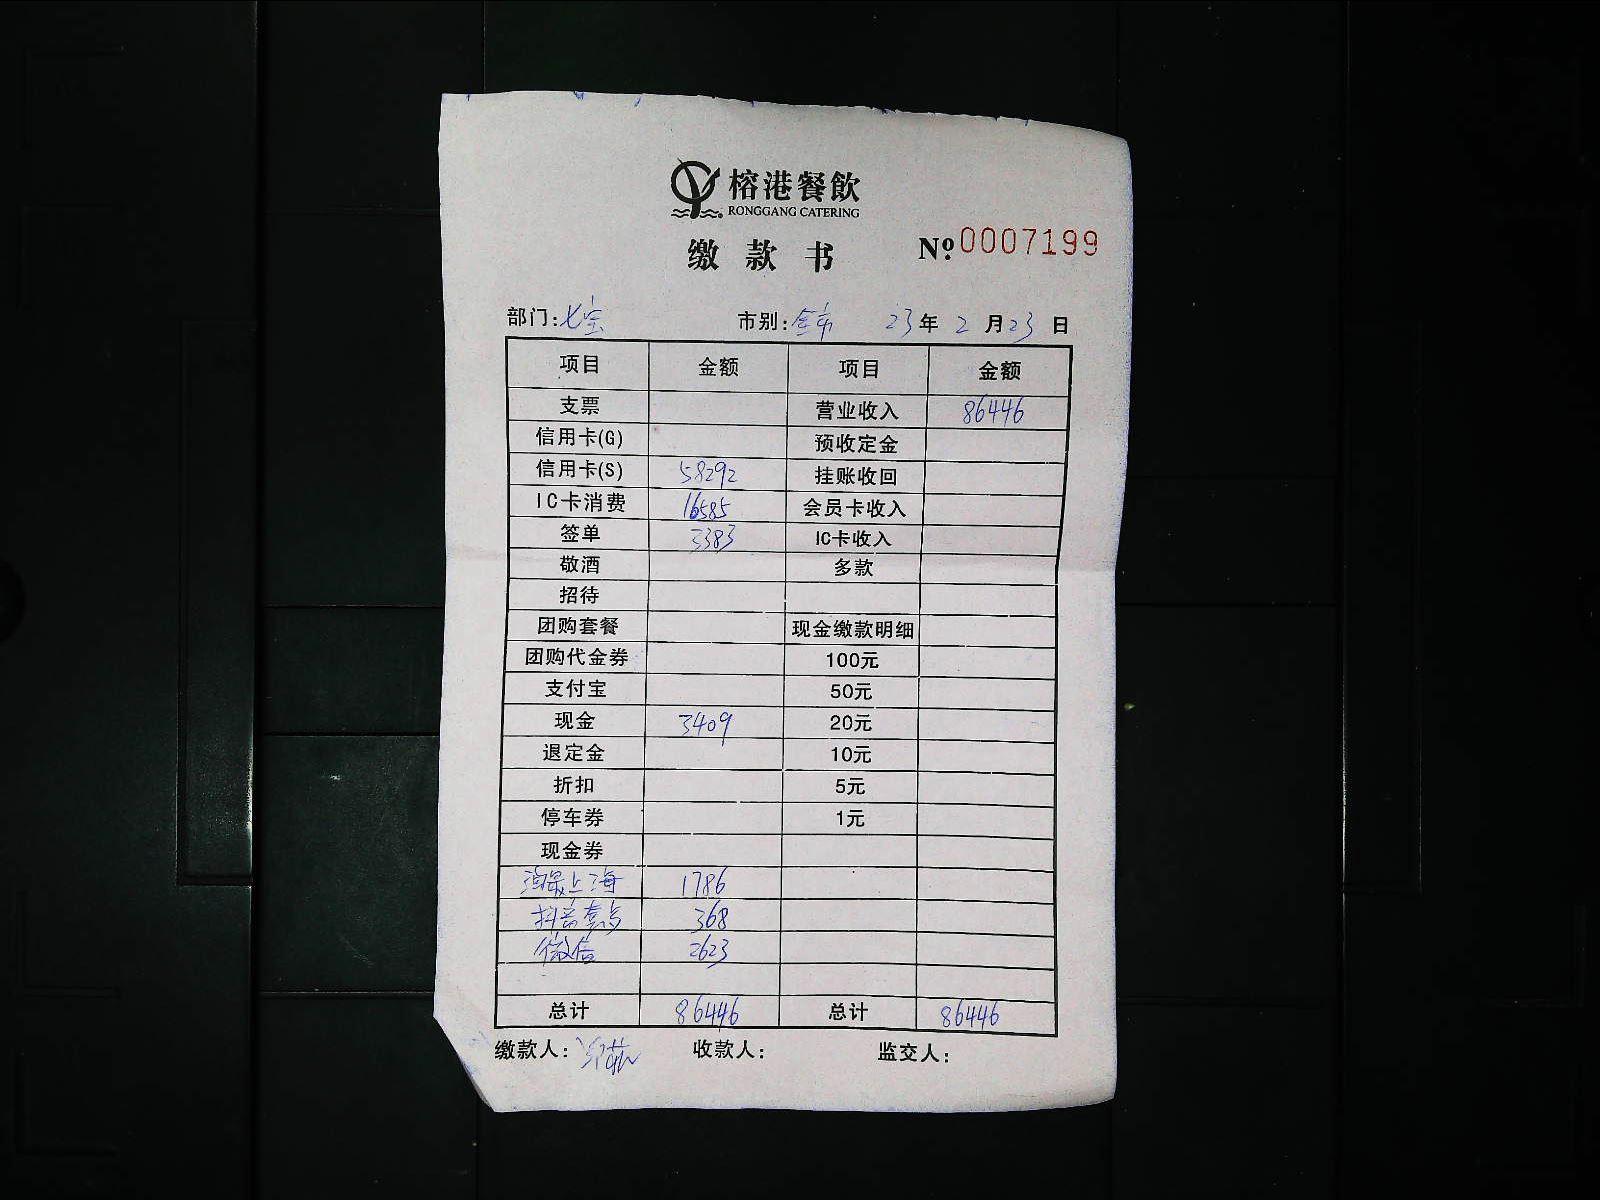 榕港餐飲
RONGGANG CATERING
缴款书 №0007199
部门:七宝 市别:全市 23年2月23日
项目 金额 项目 金额
支票 营业收入 86446
信用卡(G) 预收定金
信用卡(S) 58292 挂账收回
IC卡消费 16585 会员卡收入
签单 3383 IC卡收入
敬酒 多款
招待
团购套餐 现金缴款明细
团购代金券 100元
支付宝 50元
现金 3409 20元
退定金 10元
折扣 5元
停车券 1元
现金券
上海 1786
抖音 368
微信 2623
总计 86446 总计 86446
缴款人: 收款人: 监交人: